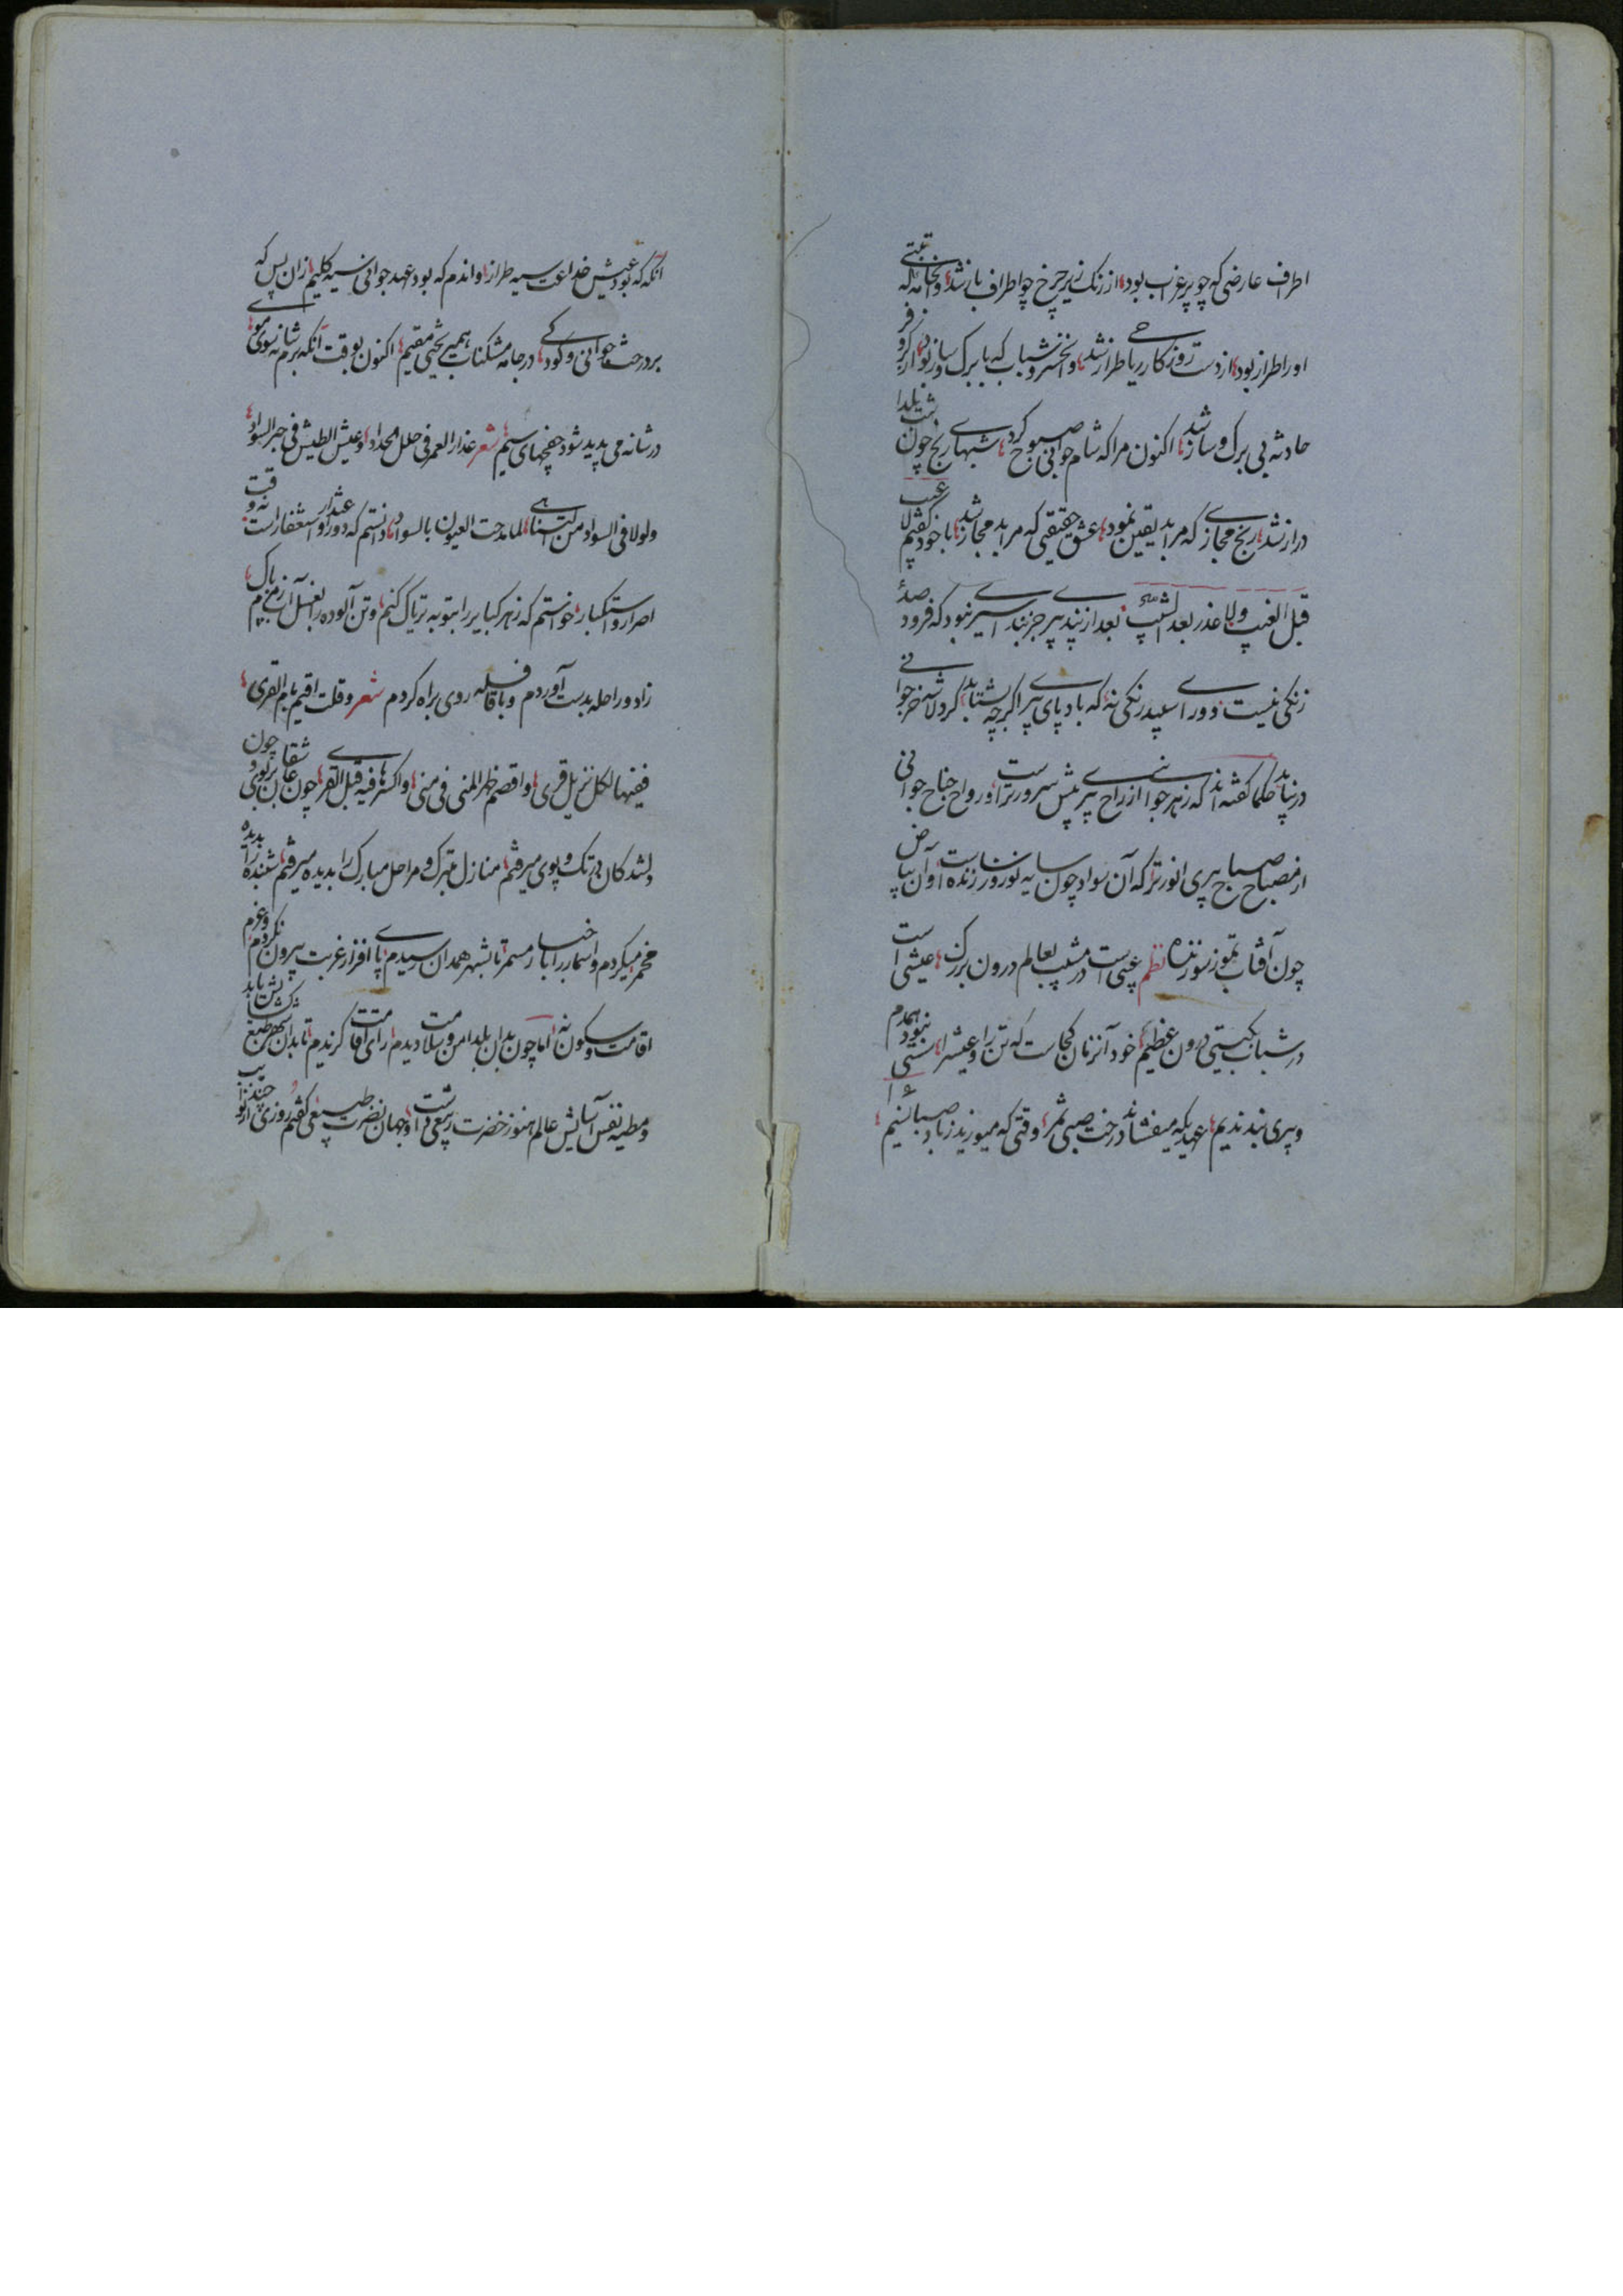 اطراف عارضی که چو پر غراب بود از زنک زیر چرخ چو اطراف باز شد وان جامه که
اورا طراز بود از دست روزکار ریاحی طراز شد وانخسرو شباب که با برک و ساز بود از کر و فر
حادثه بی برک و ساز شد اکنون مرا که شام جوانی صبوح کرد شبهای رنج چون شب یلدا
دراز شد رنج مجازی که مرا بد یقین نمود عشق حقیقی که مرا بد مجاز شد با خود کفتم لا عیب
قبل الغیب ولا عذر بعد الشیب بعد از بند پیری جز بند اسیری نبود که فرود
زنکی نیست و ورای سپیدی رنکی نه که باد پای پیری اکرچه بشتابد کرد لاشه خر جوانی
درنیابد حکما کفته اند که زهر جوانی از راح پیری پیش سرورترست و رواح جناح جوانی
از مصباح صباح پیری انورتر که آن سواد چون سایه نوروز زنده است و آن بیاض
چون آفتاب تموز سوزنده نظم عیبی است در مشیب بعالم درون بزرک عیشی است
در شباب بکیتی درون عظیم خود آنزمان کجاست که تن را و عیش را سستی نبود همدم
و پیری نبد ندیم عهدیکه میفشاند درخت صبی ثمر وقتی که میوزید ز باد صبا نسیم
آنکه که بود عیش خداعت سیه طراز واندم که بود عهد جوانی سیه کلیم زان پس که
بر درخت جوانی و کودکی در جامه مشکناب همی بختی مقیم اکنون بوقت آنکه برم شانه سوی موی
در شانه می پدید شود خفچهای سیم شعر عذار العمر فی حلل الحداد وعیش الطیش فی حبر السواد
ولولا فی السواد من التناهی لما مدحت العیون بالسواد دانستم که دور عذار و استغفار است نه وقت
اصرار و استکبار خواستم که زهر کبایر را بتوبه تریاک کنم و تن آلوده را بغسل آب زمزم پاک
زاد و راحله بدست آوردم و با قافله روی براه کردم شعر و قلت اقیم بام القری
ففیها لکل نزیل قری واقصم ظهر المنی فی منی واکثر فیه قبل القری چون عاشقان بر بوی و چون
دلشدکان در تک و پوی میرفتم منازل متبرک و مراحل مبارک را بدیده میرفتم شنیده را بدیده
مخمر میکردم و اسمار را باخبار مسمر تا بشهر همدان رسیدم پای افزار غربت بیرون نکردم و عزم
اقامت و سکون نه اما چون بدان بلد امن و سلامت دیدم رای اقامت کزیدم تا بدان شهر طبع
و مطیه نفس آسایش عالم هنوز خضرت ربیعی داشت و جهان نضرت طبیعی کفتم روزی چند